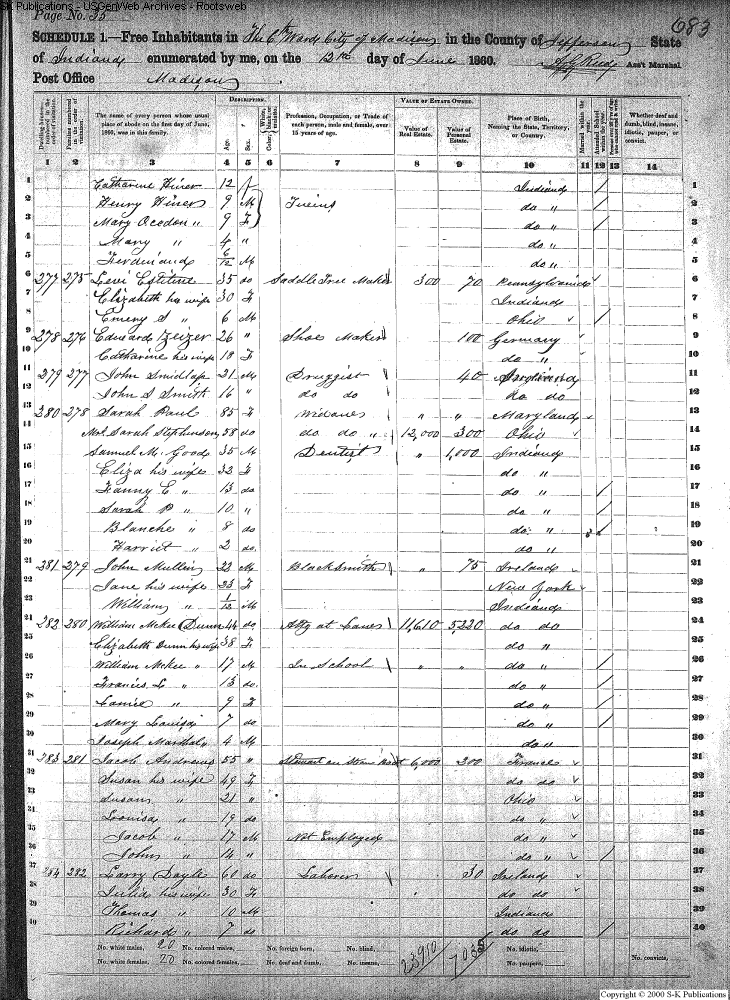 S-K Publications - USGenWeb Archives - Rootsweb
Page No. 35
683
SCHEDULE 1.—Free Inhabitants in The 6th Ward, City of Madison in the County of Jefferson State
of Indiana enumerated by me, on the 12th day of June 1860. Ass't Marshal
Post Office Madison
DESCRIPTION. VALUE OF ESTATE OWNED.
The name of every person whose usual place of abode on the first day of June, 1860, was in this family.
Age. Sex. Color, White, black, or mulatto.
Profession, Occupation, or Trade of each person, male and female, over 15 years of age.
Value of Real Estate. Value of Personal Estate.
Place of Birth, Naming the State, Territory, or Country.
Whether deaf and dumb, blind, insane, idiotic, pauper, or convict.
1 2 3 4 5 6 7 8 9 10 11 12 13 14
1 Catharine Hiner 12 f Indiana / 1
2 Henry Hiner 9 M Twins do " / 2
3 Mary " 9 F do " / 3
4 Mary " 4 " do " 4
5 Ferdinand 6/12 M do " 5
6 277 275 Levi 35 do Saddle Tree Maker 300 70 Pennsylvania 6
7 Elizabeth his wife 30 F Indiana 7
8 Emery S " 6 M Ohio / 8
9 278 276 Edward Zeizer 26 " Shoe Maker 100 Germany 9
10 Catharine his wife 18 F do " 10
11 279 277 John Smidlap 21 M Druggist 40 11
12 John S Smith 16 " do do do do 12
13 280 278 Sarah Paul 85 F Widow " " Maryland 13
14 Mrs. Sarah Stephenson 58 do do do " 12,000 300 Ohio 14
15 Samuel M. Good 35 M Dentist " 1,000 Indiana 15
16 Eliza his wife 32 F do " 16
17 Fanny C " 13 do do " / 17
18 Sarah P " 10 " do " / 18
19 Blanche " 8 do do " / 19
20 Harriet " 2 do do " 20
21 281 279 John Mullin 22 M Blacksmith " 75 Ireland 21
22 Jane his wife 23 F New York 22
23 William " 1/12 M Indiana 23
24 282 280 William McKee Dunn 44 do Atty at Law 11,610 5,220 do do 24
25 Elizabeth Dunn his wife 38 F do " 25
26 William McKee " 17 M In School " " do " / 26
27 Francis L " 13 do do " / 27
28 " 9 F do " / 28
29 Mary Louisa 7 do do " / 29
30 Joseph Marshal " 4 M do " 30
31 283 281 Jacob Andrews 55 " Steward on Steam Boat 6,000 300 France 31
32 Susan his wife 49 F do do 32
33 Susan " 21 " Ohio 33
34 Louisa " 19 do do " 34
35 Jacob " 17 M Not Employed do " 35
36 John " 14 " do " / 36
37 284 282 Larry Doyle 60 do Laborer 30 Ireland 37
38 Julia his wife 30 F do do 38
39 Thomas " 10 M Indiana 39
40 Richard " 7 do do do / 40
No. white males, 20 No. colored males, No. foreign born, No. blind, 23910 7035 No. idiotic, No. convicts,
No. white females, 20 No. colored females, No. deaf and dumb, No. insane, No. paupers,
Copyright © 2000 S-K Publications